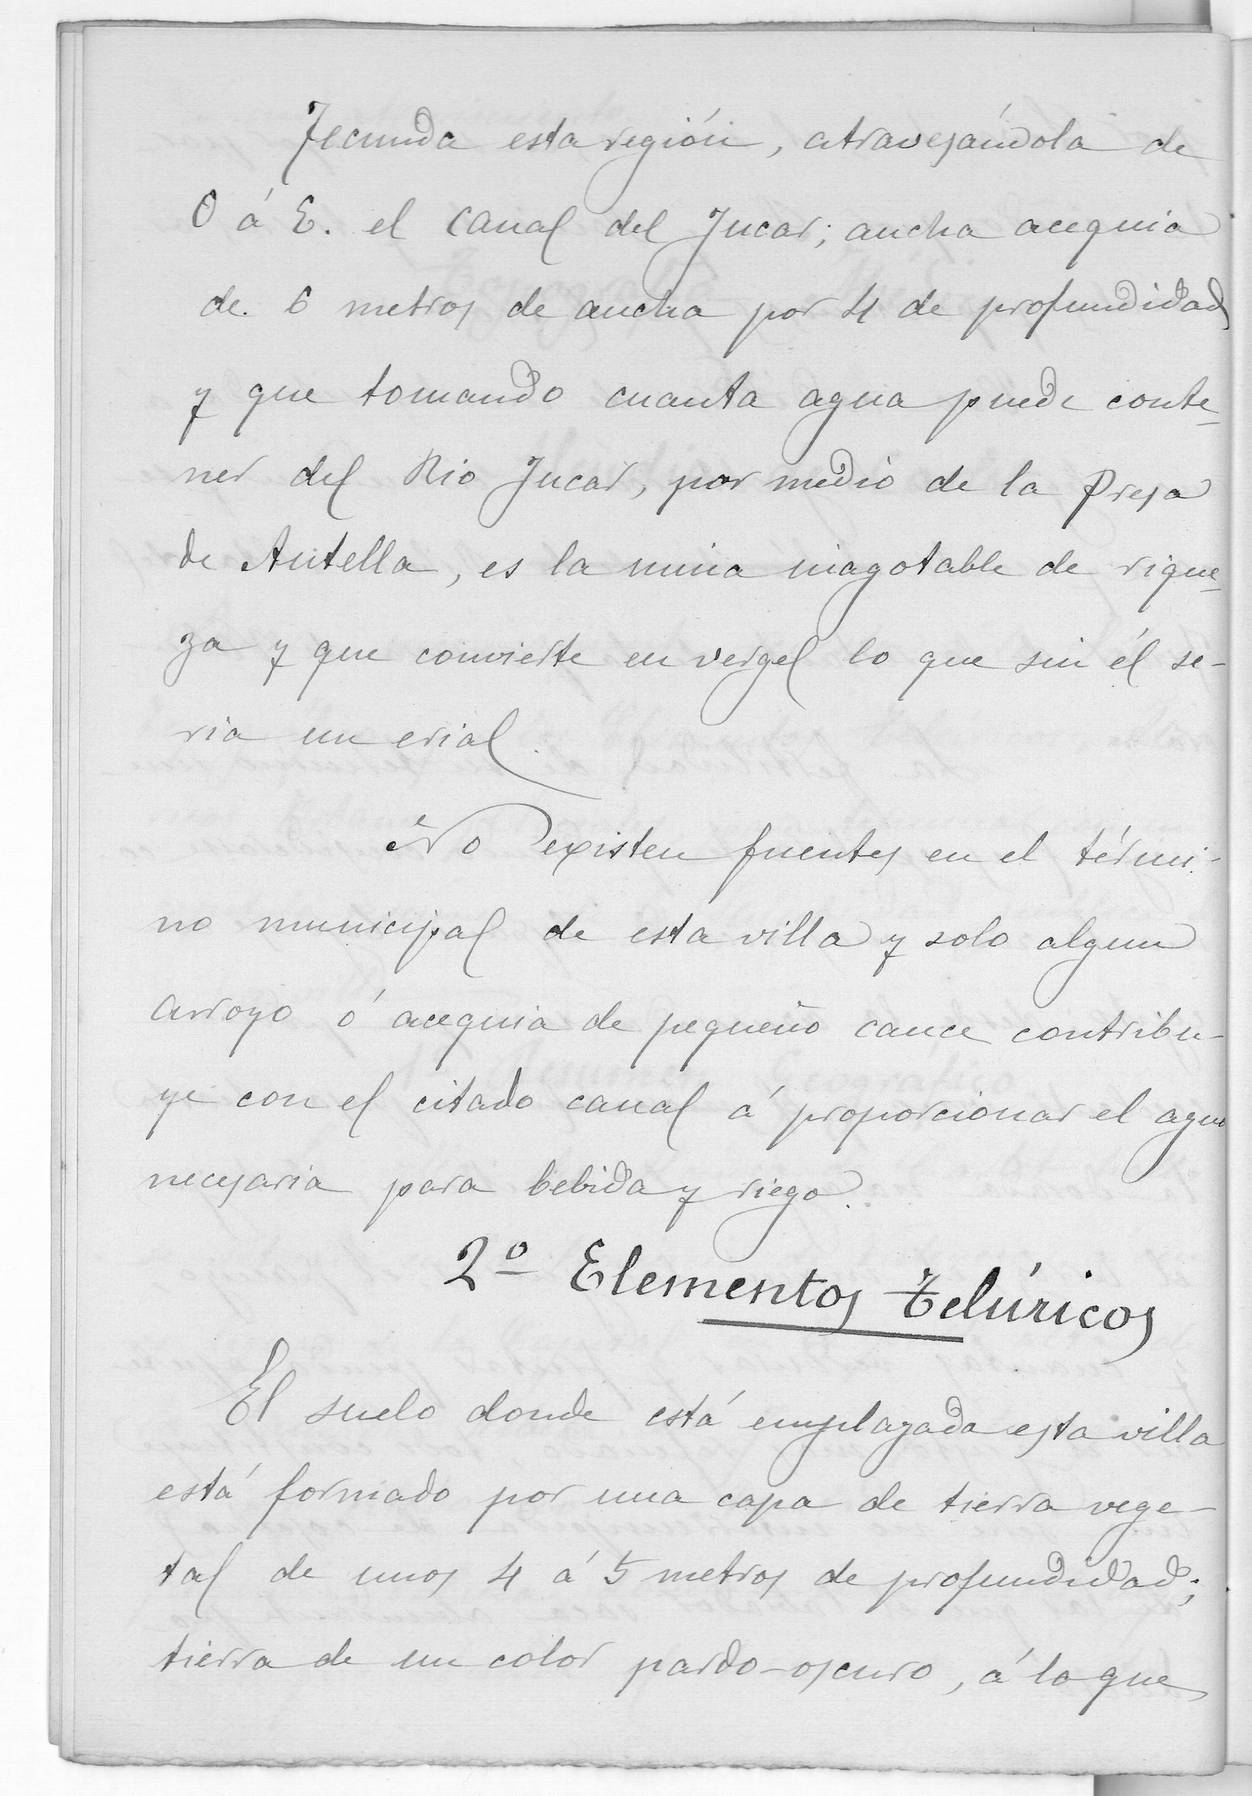 Fecunda esta región, atravesándola de
O á E. el canal del Jucar; ancha acequia
de 6 metros de ancha por 4 de profundidad
y que tomando cuanta agua puede conte-
ner del Rio Jucar, por medio de la Presa
de Antella, es la mina inagotable de rique-
za y que convierte en vergel lo que sin él se-
ria un erial.
No existen fuentes en el térmi-
no municipal de esta villa y solo algun
arroyo ó acequia de pequeño cauce contribu-
ye con el citado canal á proporcionar el agua
necesaria para bebida y riego.
2º Elementos Telúricos
El suelo donde está emplazada esta villa
está formado por una capa de tierra vege-
tal de unos 4 á 5 metros de profundidad;
tierra de un color pardo-oscuro, á la que